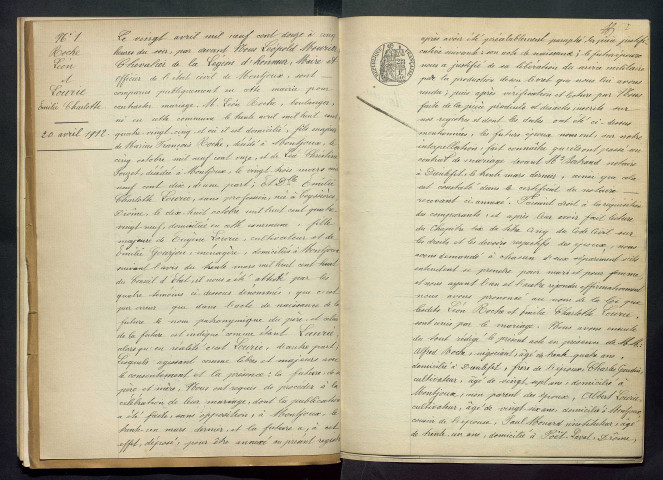 N° 1.
Roche
Léon
et
Louvie
Emilie Charlotte
20 avril 1912
Le vingt avril mil neuf cent douze à cinq
heures du soir, par devant Nous Léopold
Chevalier de la Légion d'honneur, Maire et
officier de l'état civil de Montjoux, sont
comparus publiquement en cette mairie pour
contracter mariage: M. Léon Roche, boulanger,
né en cette commune le trente avril mil huit cent
quatre vingt cinq et où il est domicilié, fils majeur
de Marius François Roche, décédé à Montjoux, le
cinq octobre mil neuf cent onze, et de
décédée à Montjoux, le vingt trois mars mil
neuf cent dix, d'une part; Et Dlle Emilie
Charlotte Louvie, sans profession, née à
Drôme, le dix huit octobre mil huit cent quatre
vingt neuf, domiciliée en cette commune, fille
majeure de Eugène Louvie, cultivateur et de
Emilie Gourjon, ménagère, domiciliés à Montjoux
suivant l'avis du trente mars mil huit cent huit
du Conseil d'Etat, et nous a été attesté par les
quatre témoins ci-dessous dénommés, que c'est
par erreur que dans l'acte de naissance de la
future le nom patronymique du père et celui
de la future est indiqué comme étant
alors qu'en réalité c'est Louvie, d'autre part;
Lesquels agissant comme libres et majeurs avec
le consentement et la présence: la future, de ses
père et mère, Nous ont requis de procéder à la
célébration de leur mariage, dont la publication
a été faite, sans opposition, à Montjoux, le
trente un mars dernier, et la future a, à cet
effet, déposé, pour être annexé au présent registre
après avoir été préalablement paraphé
suivante: son acte de naissance; le futur époux
nous a justifié de sa libération du service militaire
par la production d'un livret que nous lui avons
rendu; puis après vérification et lecture par Nous
faite de la pièce produite et des actes inscrits sur
nos registres et dont les dates ont été ci-dessus
mentionnées; les futurs époux nous ont, sur notre
interpellation, fait connaître qu'ils ont passé un
contrat de mariage devant Me notaire
à Dieulefit, le trente mars dernier, ainsi que cela
est constaté dans le certificat du notaire
recevant ci-annexé. Faisant droit à la réquisition
des comparants, et après leur avoir fait lecture
du Chapitre six du titre cinq du Code Civil sur
les droits et les devoirs respectifs des époux, nous
avons demandé à chacun d'eux séparément s'ils
entendent se prendre pour mari et pour femme,
et nous ayant l'un et l'autre répondu affirmativement
nous avons prononcé au nom de la loi que
lesdits Léon Roche et Emilie Charlotte Louvie,
sont unis par le mariage. Nous avons ensuite
du tout rédigé le présent acte en présence de M.M.
Alfred Roche, négociant, âgé de trente quatre ans,
domicilié à Dieulefit, frère de l'époux; Charles
cultivateur, âgé de vingt sept ans, domicilié à
Montjoux, non parent des époux; Albert Louvie,
cultivateur, âgé de vingt six ans, domicilié à Montjoux,
cousin de l'épouse; Paul Monard instituteur, âgé
de trente un ans, domicilié à Poët-Laval, Drôme,